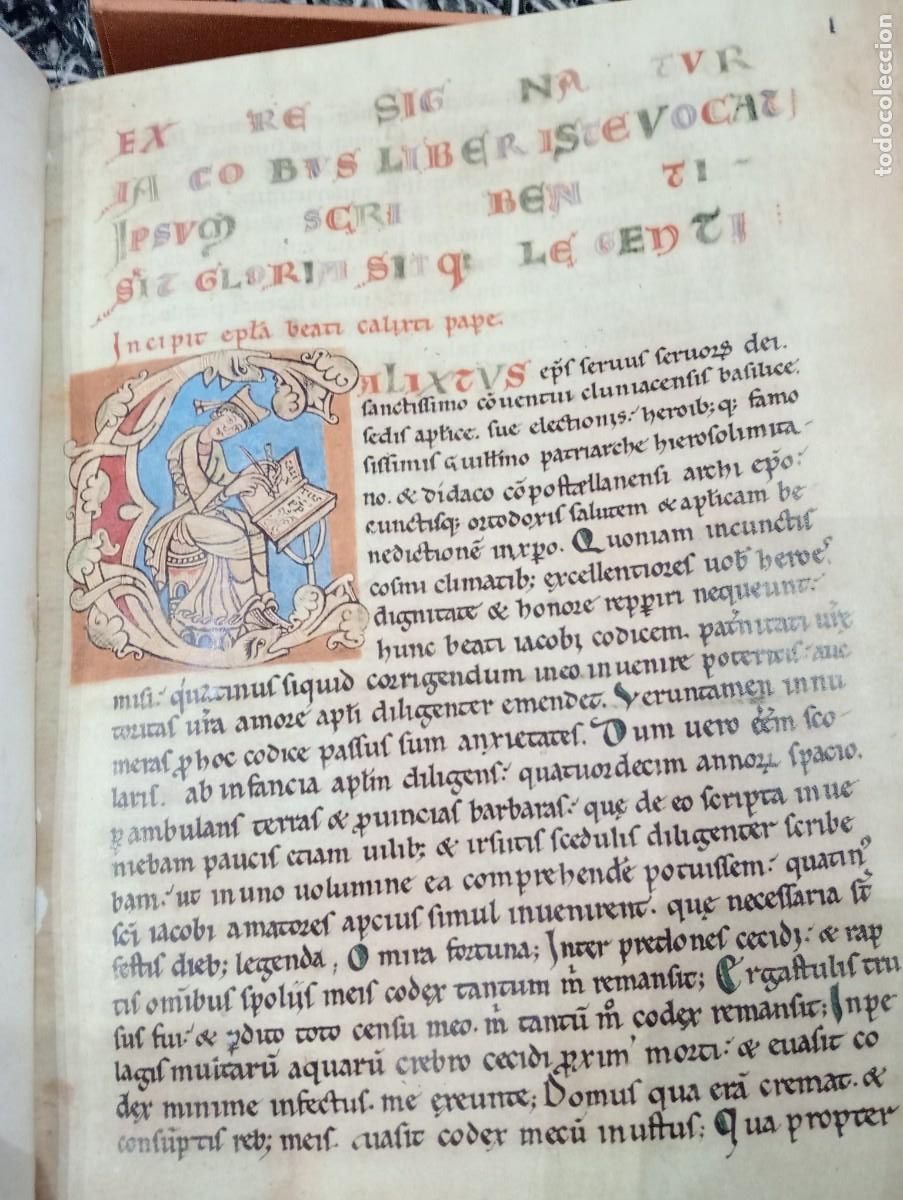 1
EX RE SIG NA TVR
IA CO BVS LIBER ISTE VOCAT
IPSVM SCRI BEN TI
SIT GLORIA SITQ; LE GENTI
Incipit epła beati calixti pape.
ALIXTVS ep̄s seruus seruoꝝ dei.
sanctissimo cōuentui cluniacensis basilice.
sedis aplice. sue electionis. heroib; q; famo
sissimis Guillino patriarche hierosolimita-
no. & didaco cōpostellanensi archi ep̄o.
cunctisq; ortodoxis salutem & aplicam be
nedictionē inxpo. Quoniam incunctis
cosmi climatib; excellentiores uob heroes
dignitate & honore repperiri nequeunt.
hunc beati iacobi codicem. pat̄nitati urē
misi. quatinus siquid corrigendum ineo inuenire poteritis auc
toritas ura amore apli diligenter emendet. Veruntamen innu
meras ꝓ hoc codice passus sum anxietates. Dum uero eēm sco-
laris. ab infancia aplm diligens. quatuordecim annoꝝ spacio.
ꝑambulans terras & ꝓuincias barbaras. que de eo scripta inue
niebam paucis etiam uilib; & irsutis scedulis diligenter scribe
bam. ut in uno uolumine ea comprehendē potuissem. quatin᾿
sci iacobi amatores apcius simul inuenirent. que necessaria st̄
festis dieb; legenda, O mira fortuna; Inter predones cecidi. & rap
tis omībus spoliis meis codex tantum m̄ remansit; Ergastulis tru
sus fui. & ꝑdito toto censu meo. m̄ tantū m̊ codex remansit; Inpe
lagis multarū aquarū crebro cecidi ꝓxim᾿ morti. & euasit co
dex minime infectus. me exeunte; Domus qua erā cremat. &
consūptis reb; meis. euasit codex mecū inustus; Qua propter
todocoleccion